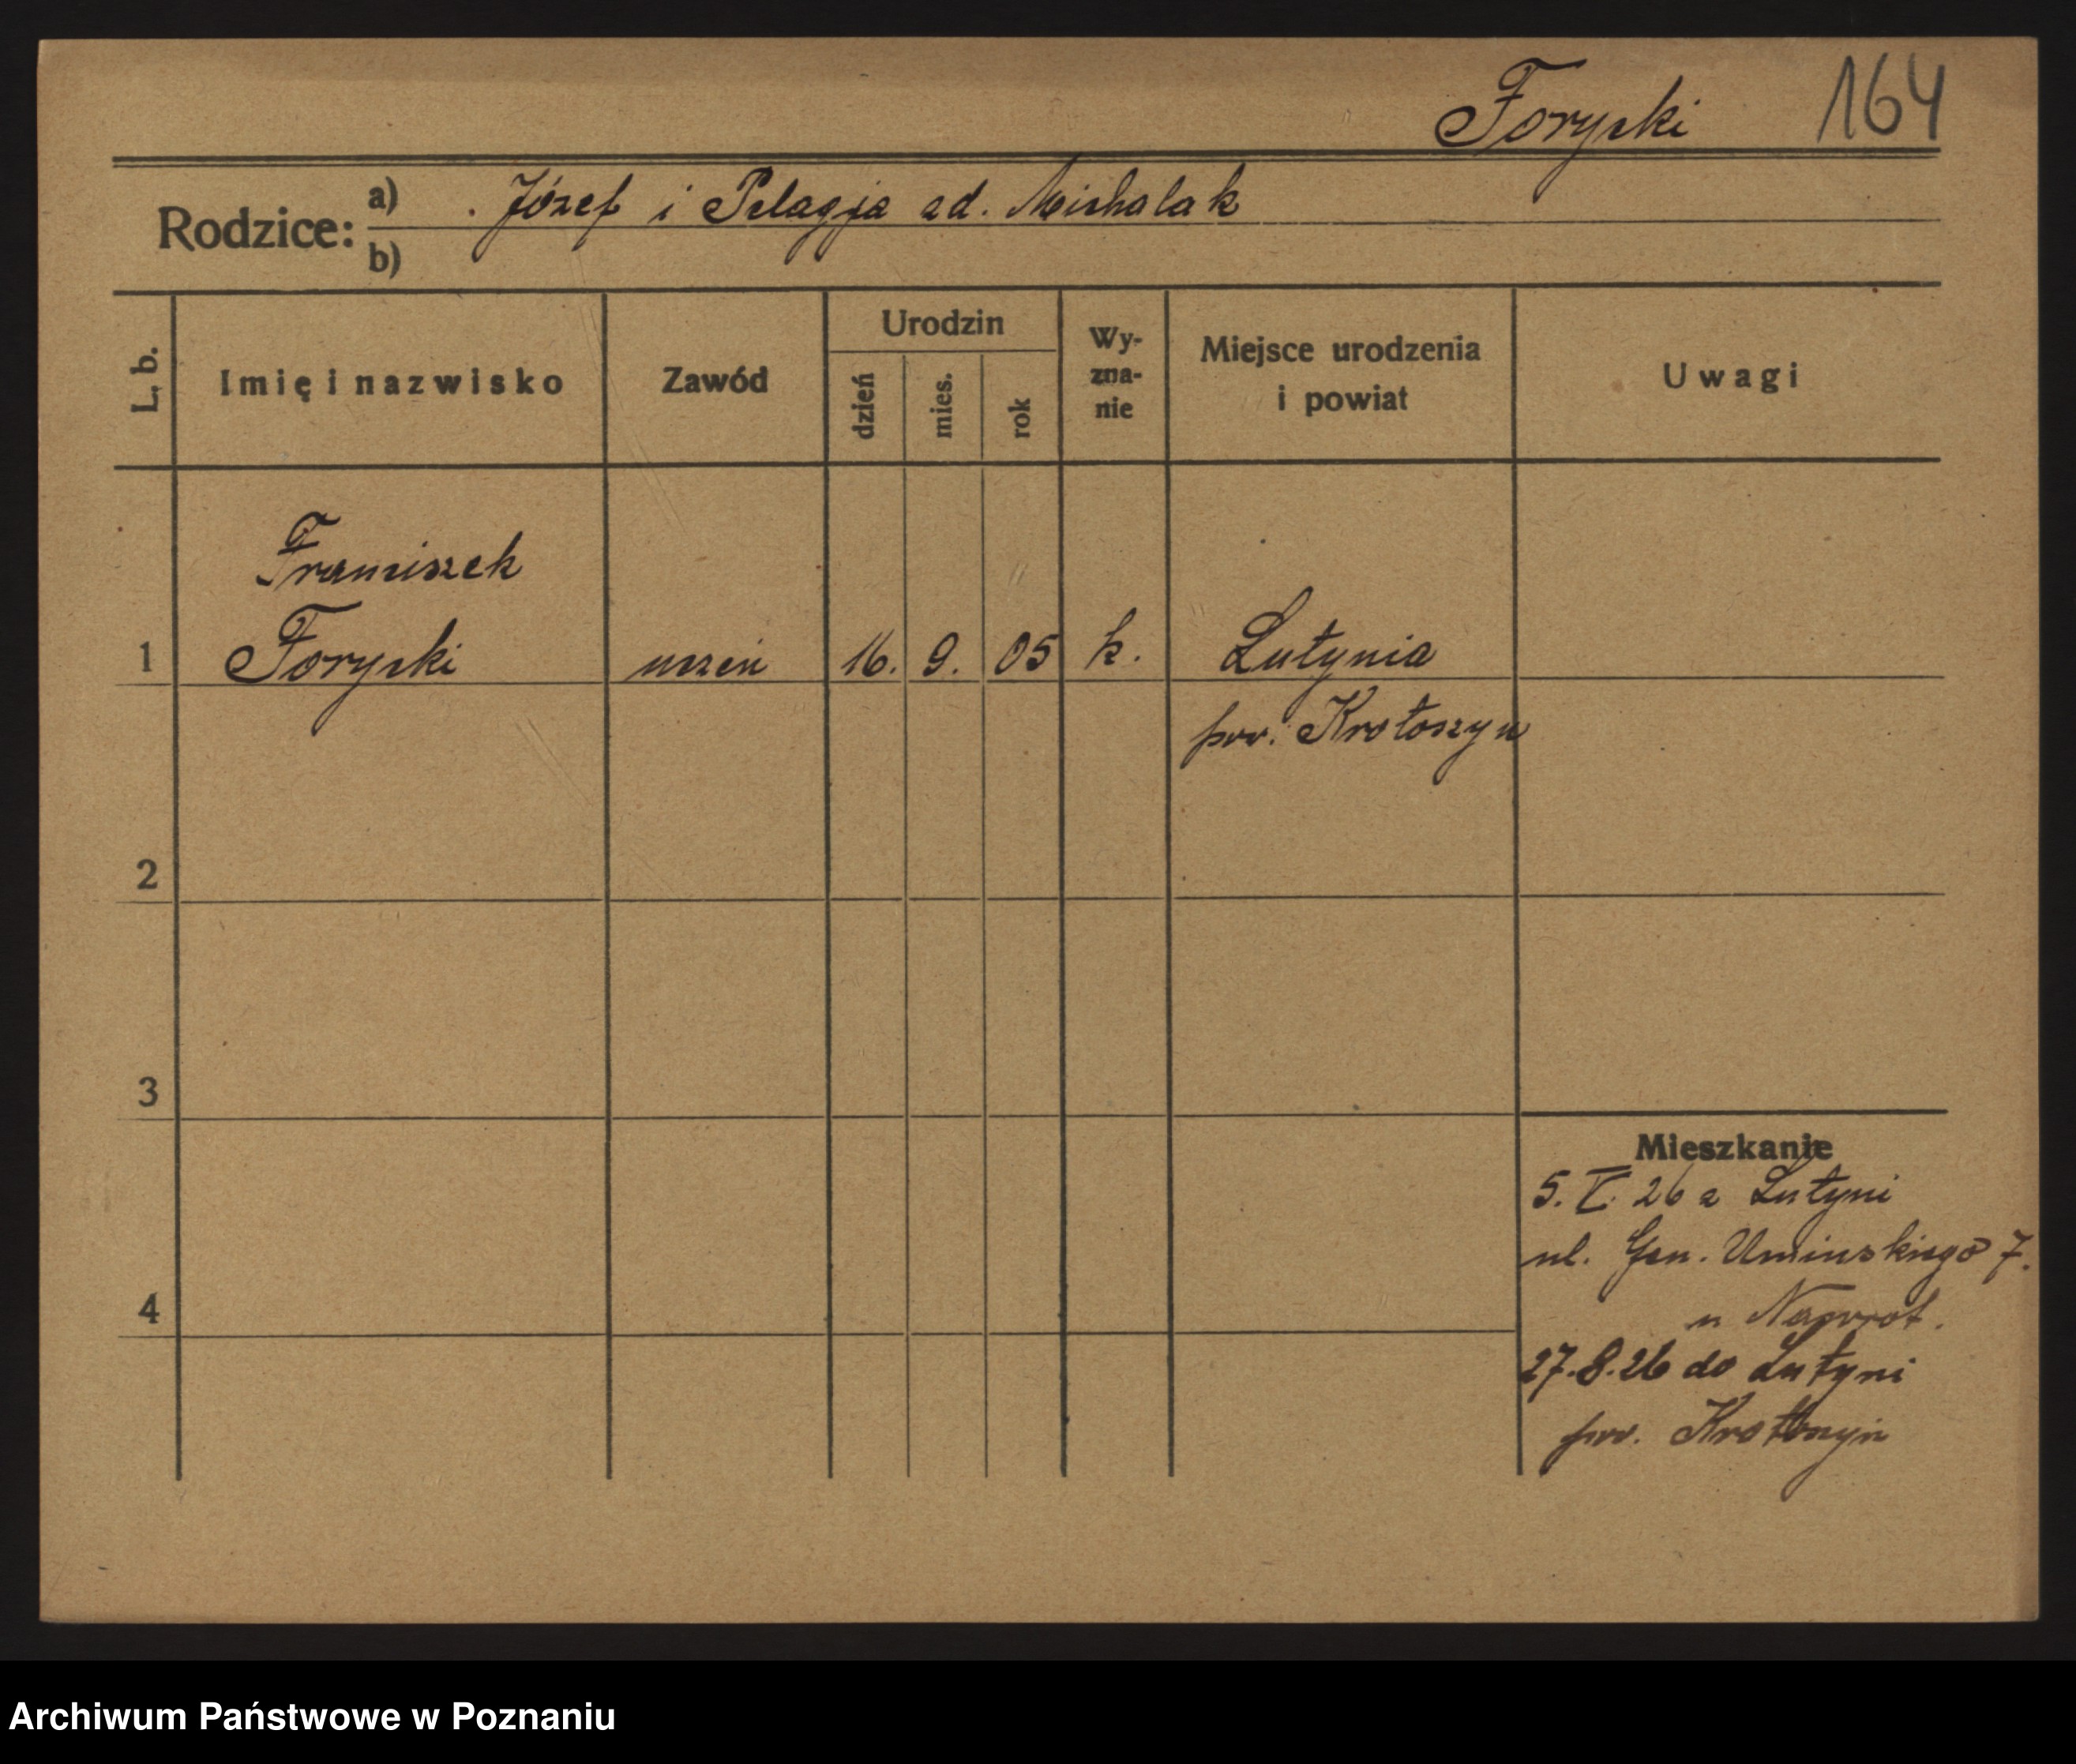 Forycki 164
Rodzice: a) Józef i Pelagja zd. Michalak
b)
L. b.
Imię i nazwisko
Zawód
Urodzin
dzień
mies.
rok
Wy-
zna-
nie
Miejsce urodzenia
i powiat
Uwagi
Franciszek
1 Forycki uczeń 16. 9. 05 k. Lutynia
pow. Krotoszyn
2
3
4
Mieszkanie
5. V. 26 z Lutyni
ul. Gen. Umińskiego 7.
u Nawrot.
27.8.26 do Lutyni
pow. Krotoszyn
Archiwum Państwowe w Poznaniu